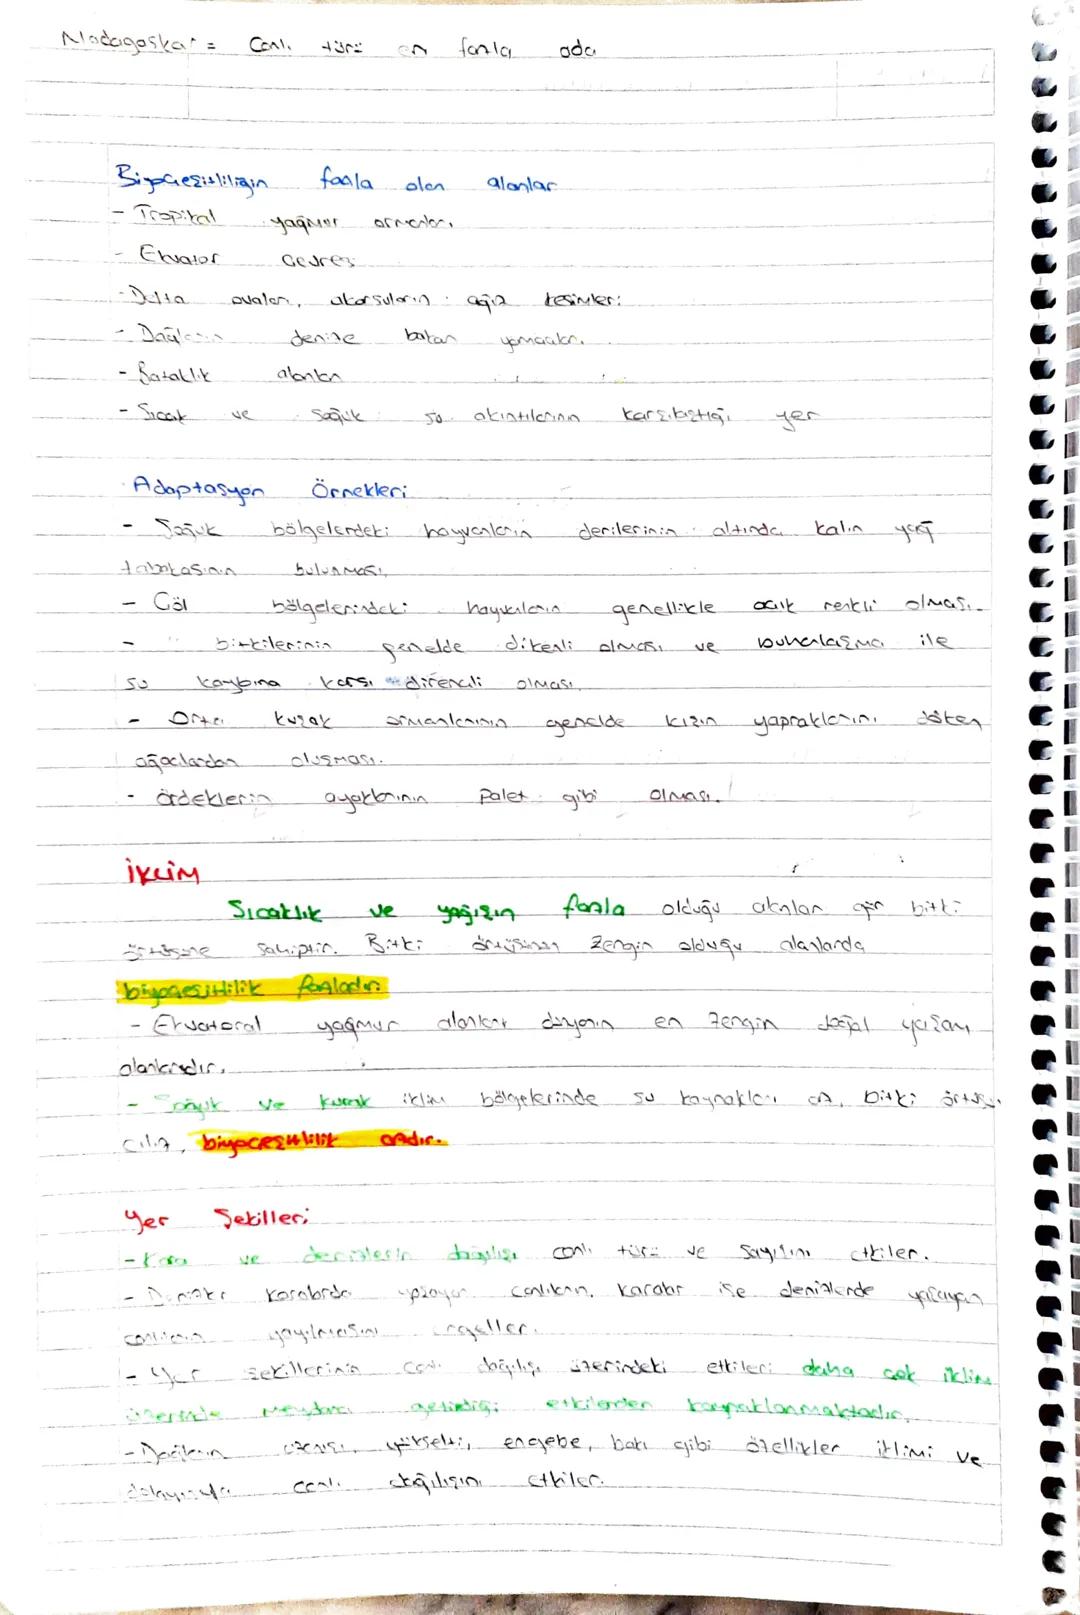 Madagaskar = Canlı türü en fazla ada
Biyoçeşitliliğin fazla olan alanlar
- Tropikal yağmur ormanları
- Ekvator çevresi
- Delta ovaları, akarsuların ağız kesimleri
- Dağların denize bakan yamaçları
- Bataklık alanları
- Sıcak ve soğuk su akıntılarının karşılaştığı yer
Adaptasyon Örnekleri
- Soğuk bölgelerdeki hayvanların derilerinin altında kalın yağ
tabakasının bulunması
- Çöl bölgelerindeki hayvanların genellikle açık renkli olması.
- " bitkilerinin genelde dikenli olması ve buharlaşma ile
su kaybına karşı dirençli olması
- Orta kuzak ormanlarının genelde kışın yapraklarını döken
ağaçlardan oluşması.
- Ördeklerin ayaklarının palet gibi olması.
İKLİM
Sıcaklık ve yağışın fazla olduğu alanlar gür bitki
örtüsüne sahiptir. Bitki örtüsünün zengin olduğu alanlarda
biyoçeşitlilik fazladır.
- Ekvatoral yağmur alanları dünyanın en zengin doğal yaşam
alanlarıdır.
- Soğuk ve kurak iklim bölgelerinde su kaynakları az, bitki örtüsü
cılız, biyoçeşitlilik azdır.
Yer Şekilleri
- Kara ve denizlerin dağılışı canlı türü ve sayısını etkiler.
- Denizler karalarda yaşayan canlıların, karalar ise denizlerde yaşayan
canlıların yayılmasını engeller.
- Yer şekillerinin canlı dağılışı üzerindeki etkileri daha çok iklim
üzerinde meydana getirdiği etkilerden kaynaklanmaktadır.
- Dağların uzanışı, yükselti, engebe, bakı gibi özellikler iklimi ve
dolayısıyla canlı dağılışını etkiler.